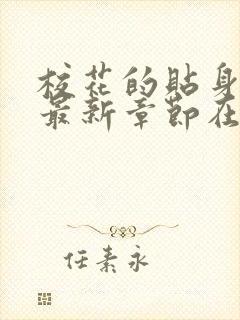 校花的貼身
最新章節在
任素永